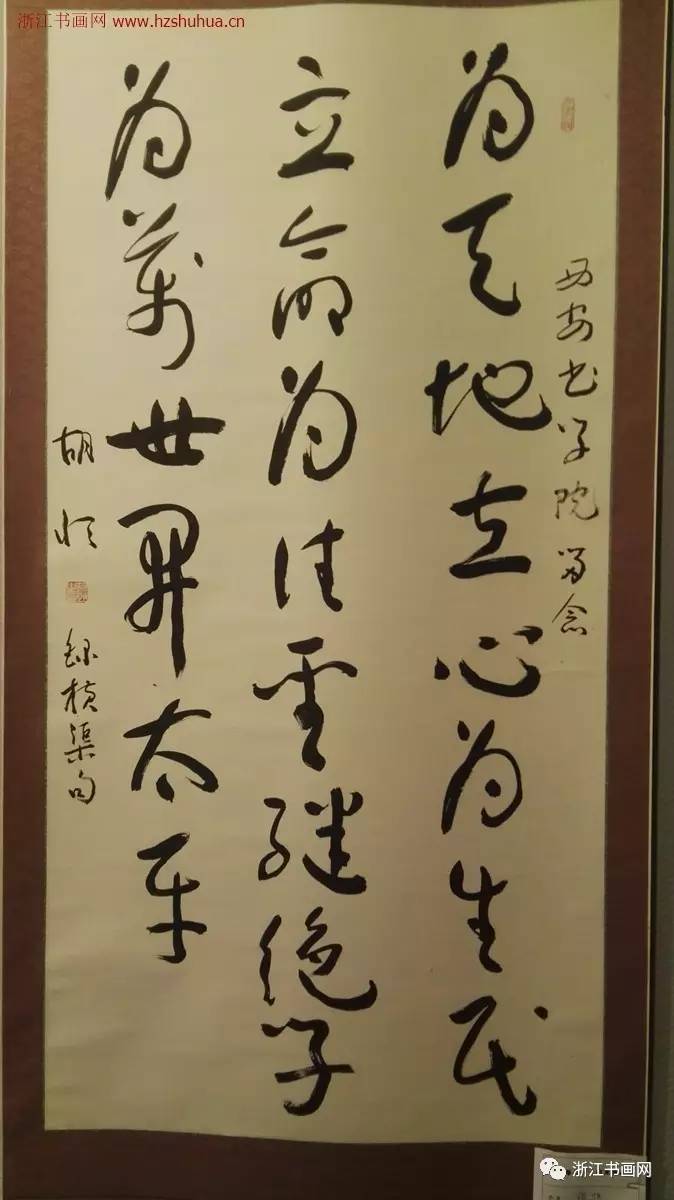 浙江书画网 www.hzshuhua.cn
西安书学院留念
为天地立心为生民
立命为往圣继绝学
为万世开太平
胡
録横渠句
浙江书画网